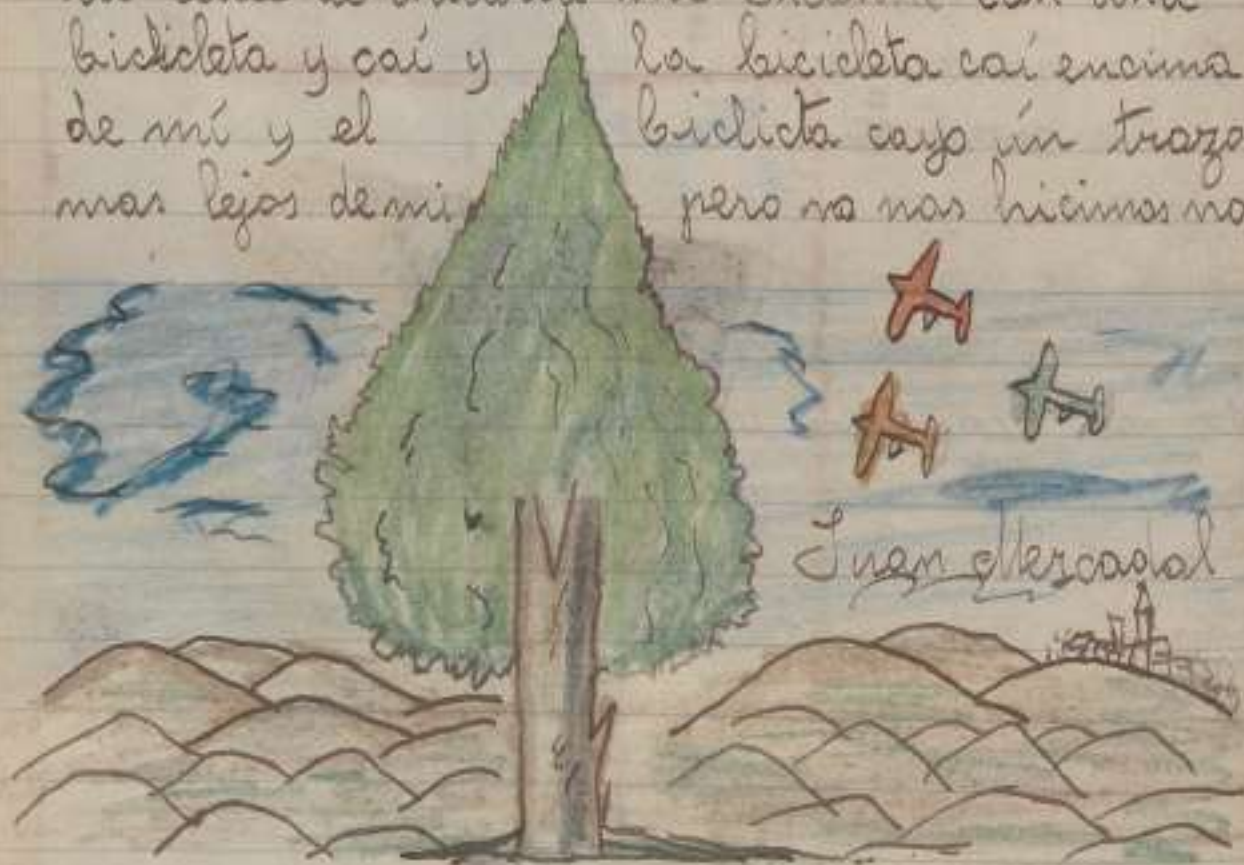 bickicleta y caí y la bicicleta caí encima
de mí y el biclicta cayo ún trazo
mas lejos de mi pero no nos hicimos na
Juan Mercadal